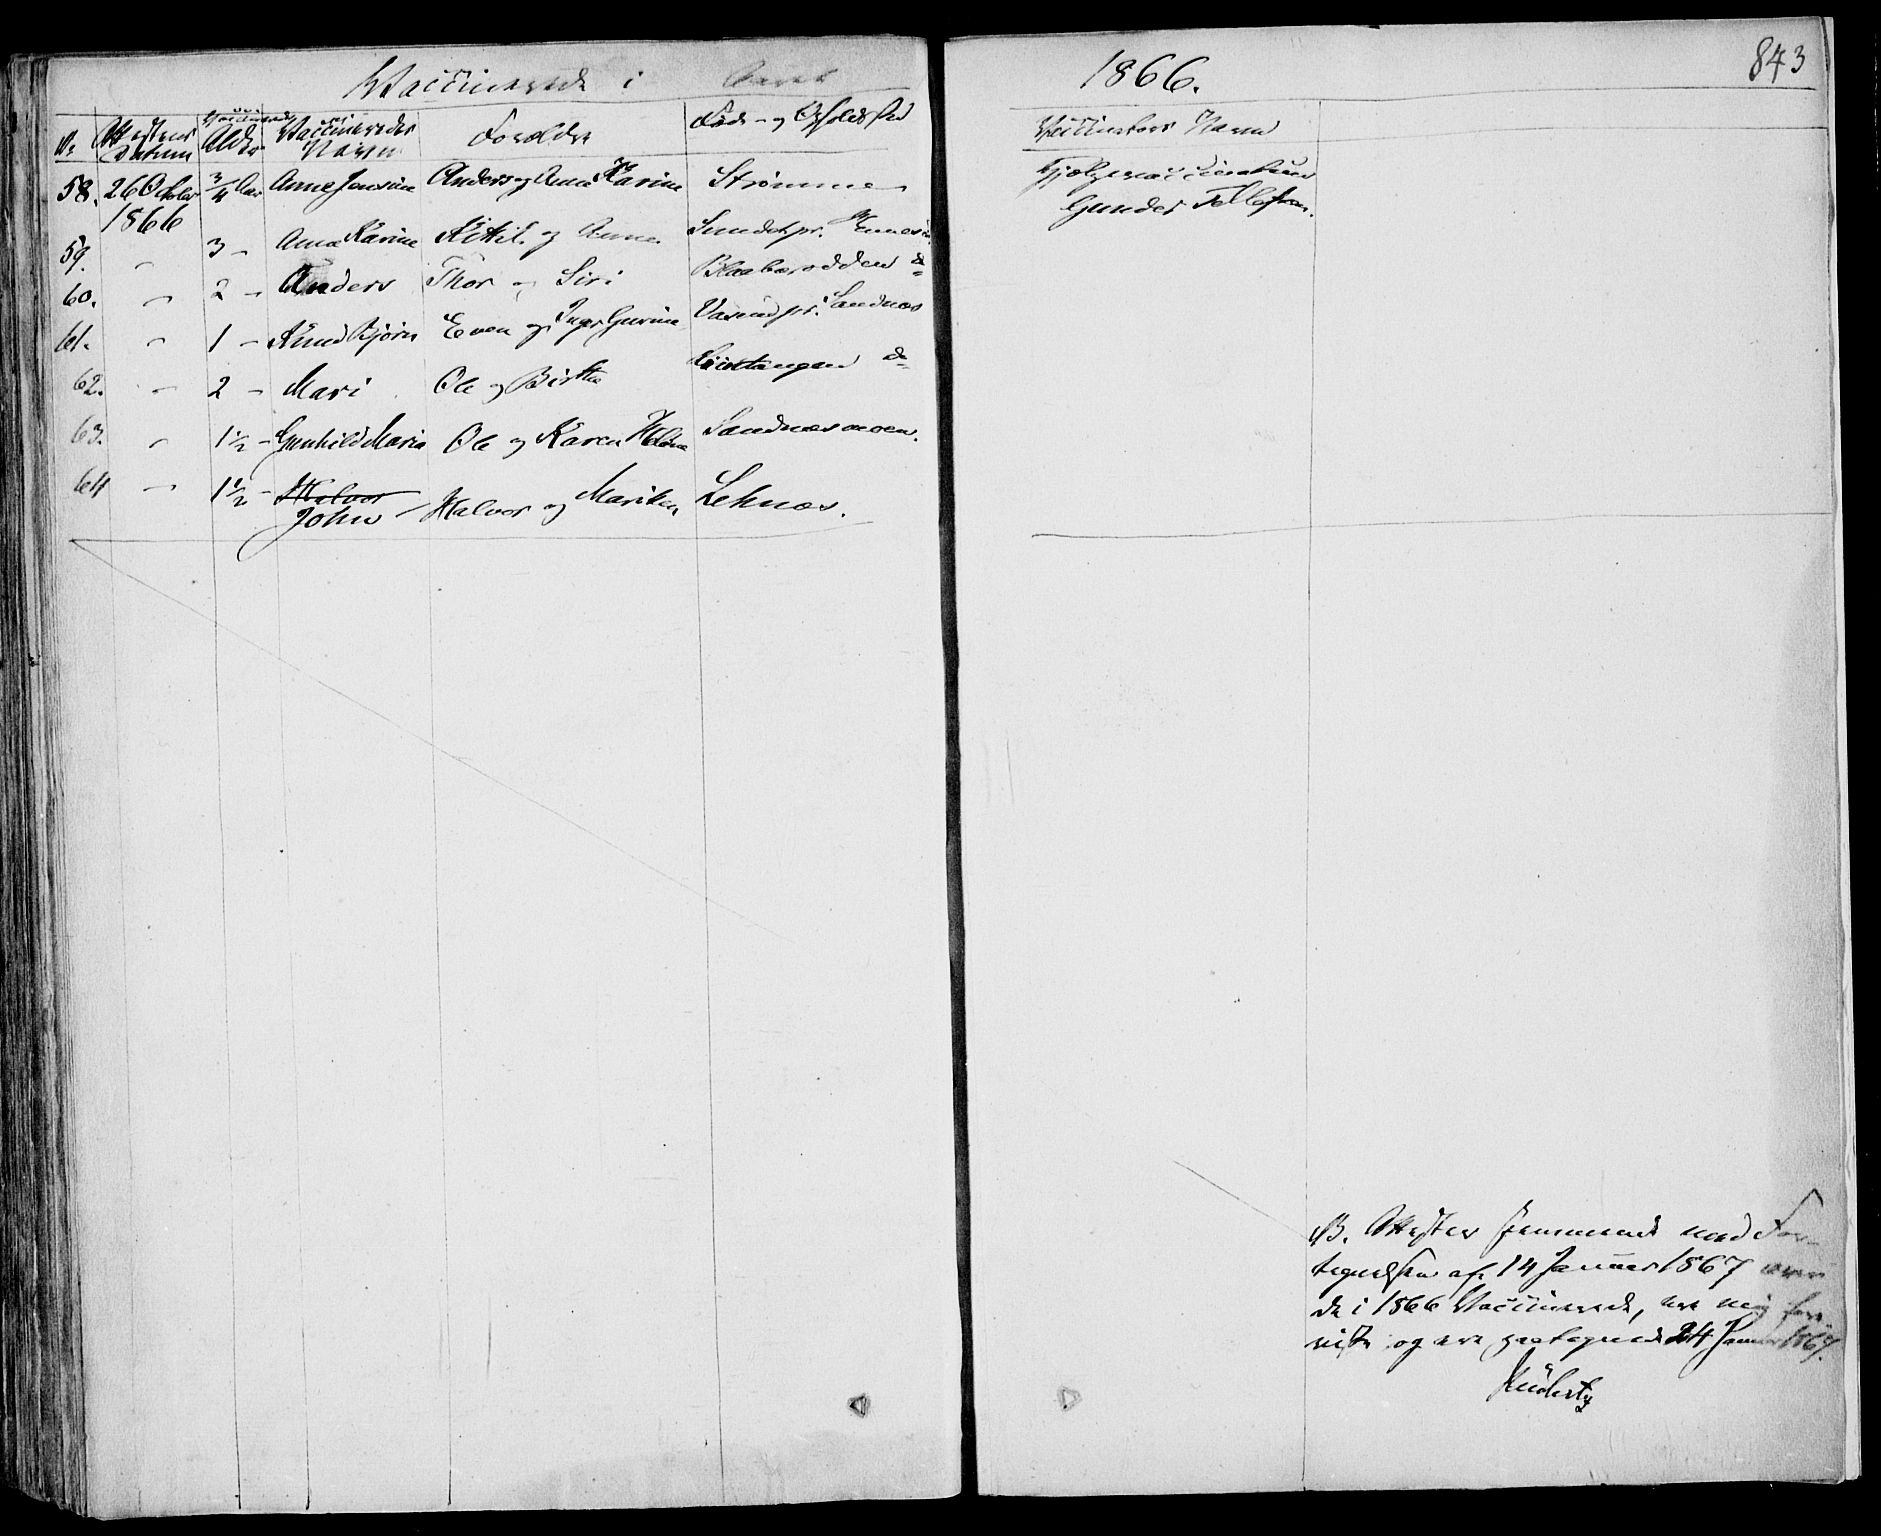 Vaccinerede i Aaret 1866. 843
No Attestens Datum Alder Vaccineredes Navn Forældre Føde- og Opholdssted Vaccinators Navn
58. 26 October 1866 3/4 Aar Anne Jensine Anders og Anne Karine Strømme Hjælpevaccinateur
Gunder Tellefsen.
59. " 3 - Anne Karine Kittil og Anne Sundet pr.
60. " 2 - Anders Thor og Siri Blaabærodden do
61. " 1 - Knud Bjørn Even og Inger Gurine pr. Sandnæs
62. " 2 - Mari Ole og Birthe do
63. " 1 1/2 - Gunhild Maria Ole og Karen Helene Sandnæsmoen.
64 " 1 1/2 - Halvor
John Halvor og Mariken Leknæs.
NB. Attester stemmende med For-
tegnelsen af 14 Januar 1867 over
de i 1866 Vaccinerede, ere mig fore-
viste og ere paategnede 24 Januar 1867.